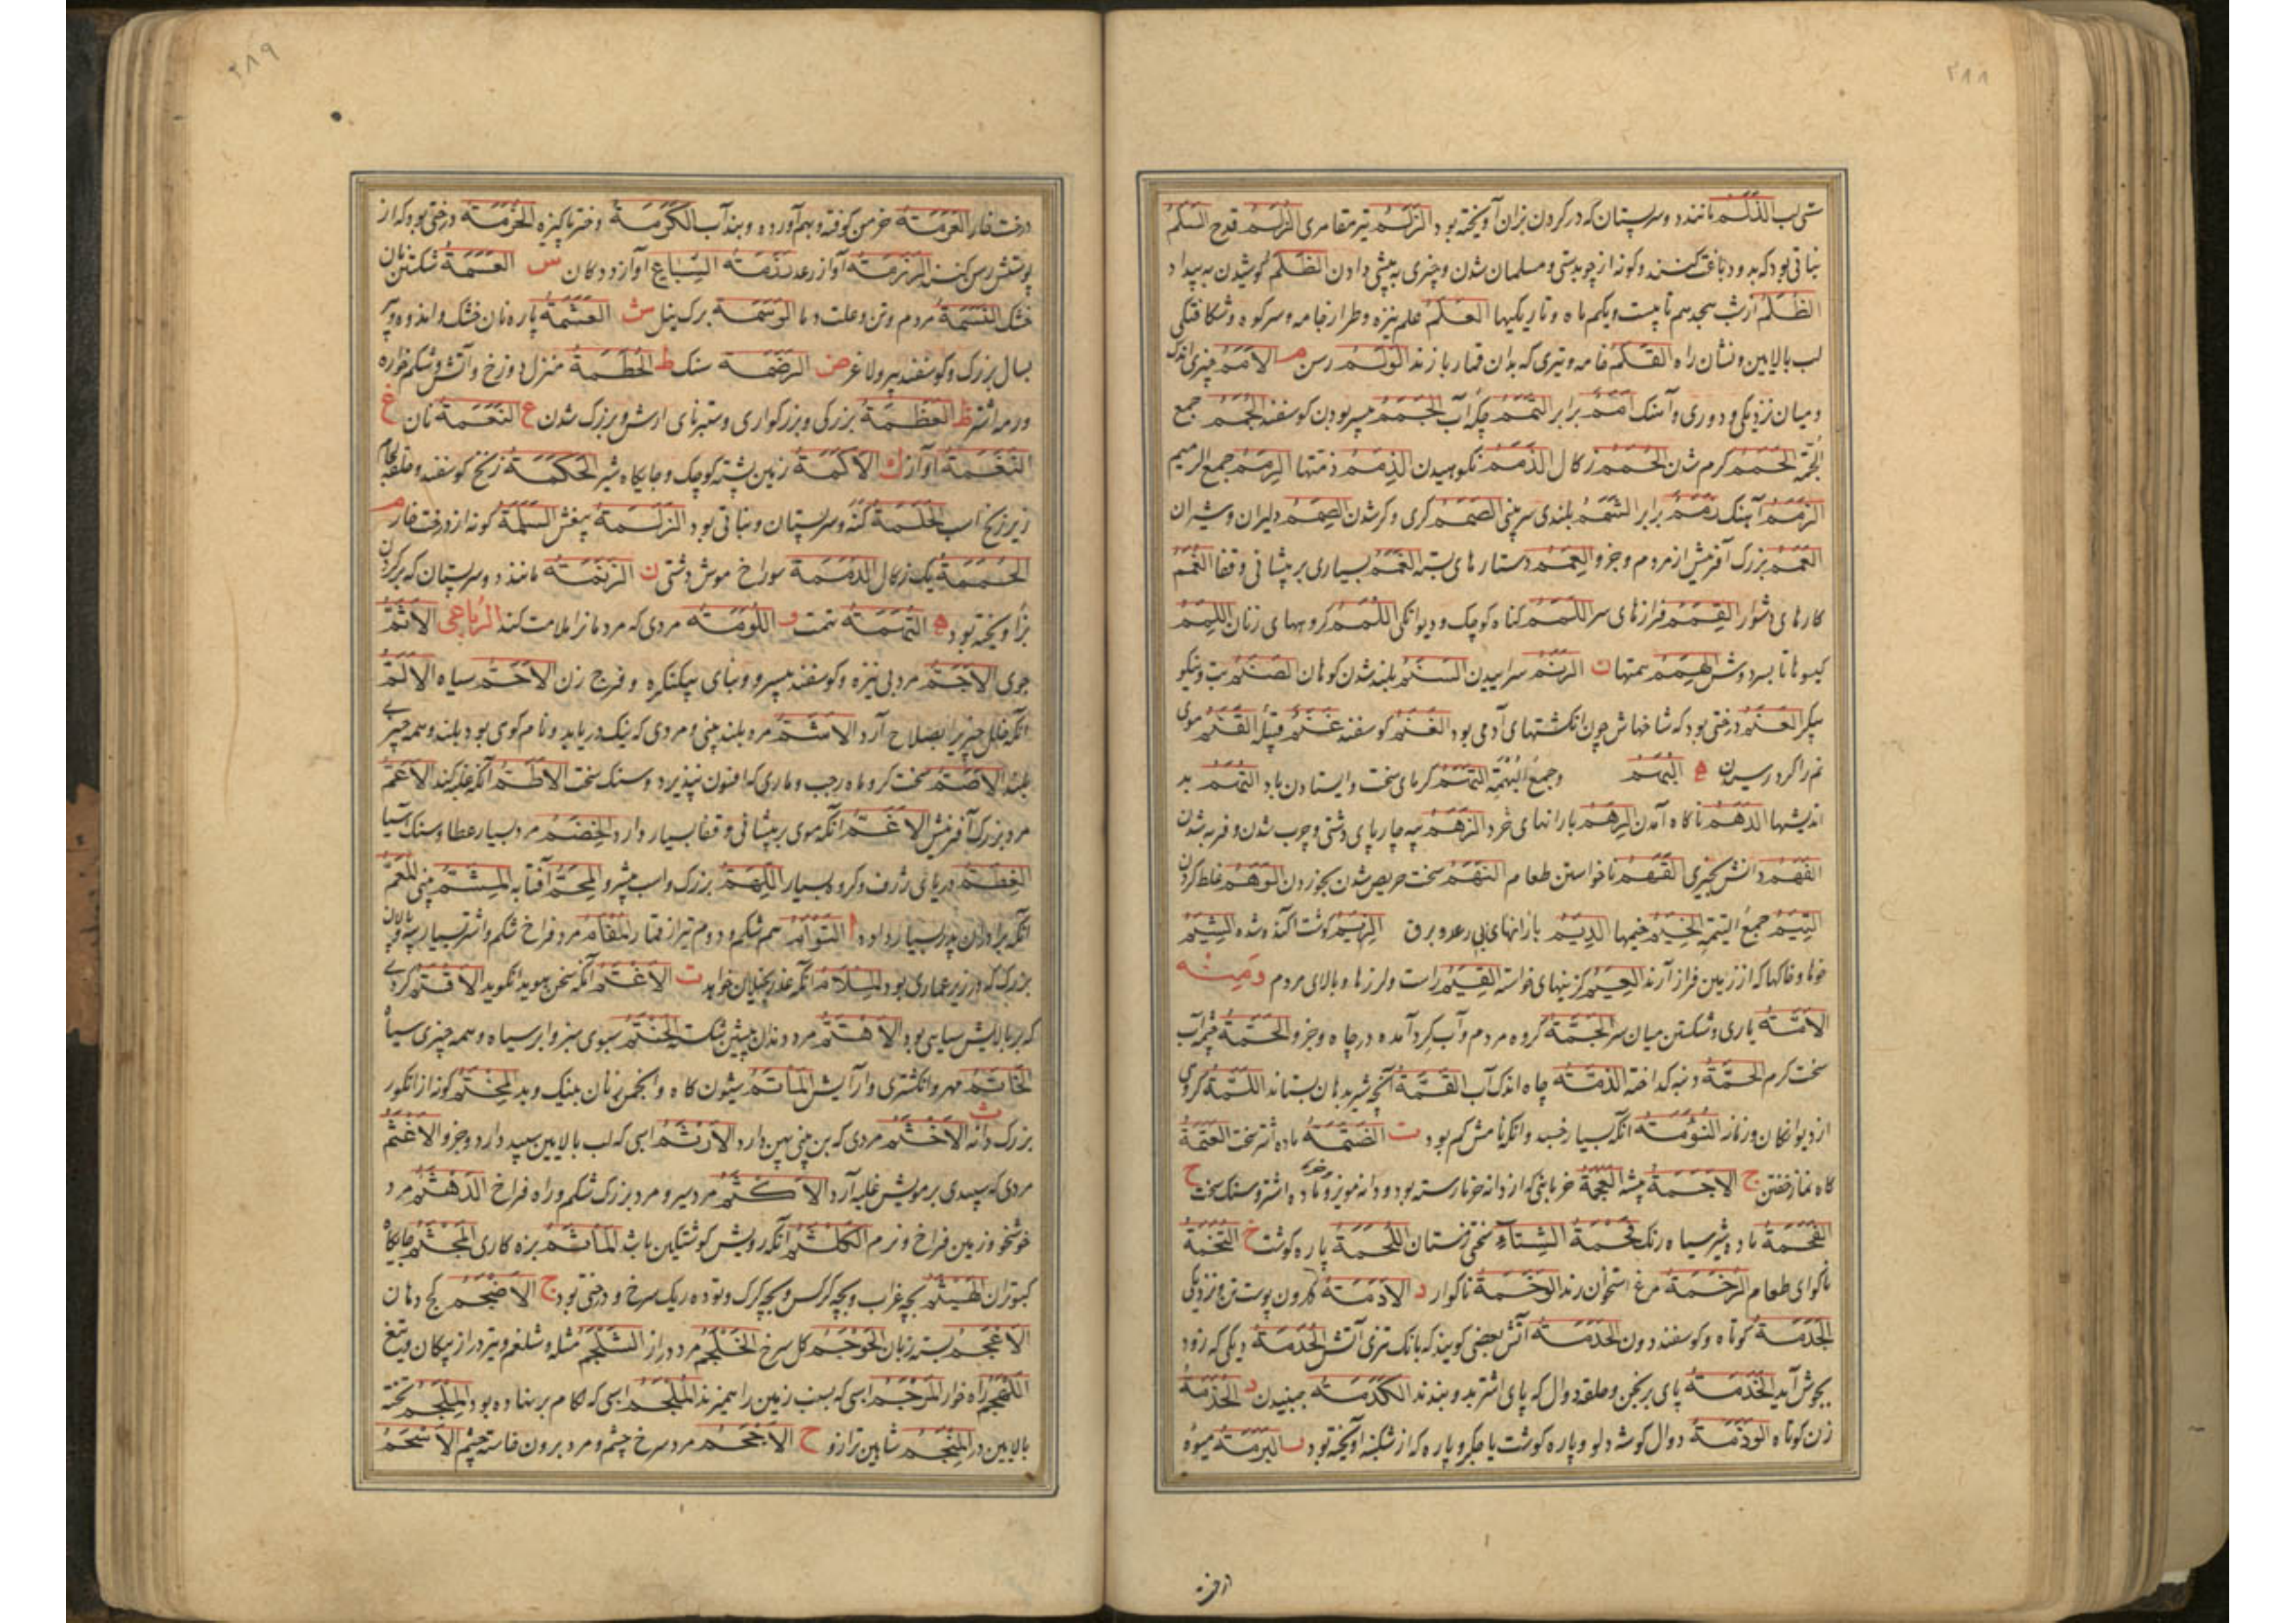 ۲۸۸
تهی لب الذَّلَمُ مانند دو سر پستان که در گردن بزان آویخته بود الزَّلَمُ تیر مقامری الزُّلَمُ قدح السَّلَمُ
نباتی بود که بدو دباغت کنند و گونه از چوبدستی و مسلمان شدن و چیزی به پیشی دادن الظُّلَمُ کوشیدن به بیداد
الظُّلَمُ از شب هجدهم تا بیست و یکم ماه و تاریکیها العَلَمُ علم نیزه و طراز جامه و سر کوه و شکافتگی
لب بالایین و نشان راه القَلَمُ خامه و تیری که بدان قمار بازند الوَلَمُ رسن م الاَمَمُ چیزی اندک
و میان نزدیکی و دوری و آهنگ اَمَمٌ برابر الثَّمَمُ چکه آب الجَمَمُ بیسر بودن گوسفند الجُمَمُ جمع
الجُمَّة الحَمَمُ گرم شدن الحُمَمُ زکال الذَّمَمُ نکوهیدن الذِّمَمُ ذمتها الرِّمَمُ جمع الرمیم
الزَّمَمُ آهنگ زَمَمٌ برابر الشَّمَمُ بلندی سر بینی الصَّمَمُ کری و کر شدن الصِّمَمُ دلیران و شیران
العَمَمُ بزرگ آفرینش از مردم و جزو العِمَمُ دستارهای بسته الغَمَمُ بسیاری بر پیشانی و قفا الغُمَمُ
کارهای دشوار القِمَمُ فرازهای سر اللَّمَمُ گناه کوچک و دیوانگی اللُّمَمُ گروههای زنان اللِّمَمُ
گیسوها تا بر دوش الهِمَمُ همتها ن الرَّنَمُ سراییدن السَّنَمُ بلند شدن کوهان الصَّنَمُ بت و نیکو
پیکر العَنَمُ درختی بود که شاخهاش چون انگشتهای آدمی بود الغَنَمُ گوسفند غَنَمٌ قبیله القَنَمُ موی
نم را گرد رسیدن ه البُهَمُ و جمع البُهْمَة التَّهَمُ گرمای سخت و ایستادن باد التُّهَمُ بد
اندیشها الدَّهَمُ ناگاه آمدن الرِّهَمُ بارانهای خرد الزَّهَمُ پیه چارپای دشتی و چرب شدن و فربه شدن
الفَهَمُ دانش بچیزی القَهَمُ ناخواستن طعام النَّهَمُ سخت حریص شدن بخوردن الوَهَمُ غلط کردن
التِّیَمُ جمع التیمة الخِیَمُ خیمها الدِّیَمُ بارانهای بی رعد و برق الزِّیَمُ گوشت آکنده شده الشِّیَمُ
خوها و خاکها که از زمین فراز آرند العِیَمُ گزینهای خواسته القِیَمُ راست و ارزها و بالای مردم وَمِنْه
الاَمَّةُ یاری و شکستن میان سر الجَمَّةُ گروه مردم و آب گرد آمده در چاه و جزو الحَمَّةُ چشمه آب
سخت گرم الحَمَّةُ دنبه گداخته الذَّمَّةُ چاه اندک آب القَمَّةُ آنچه شیر بدهان بستاند اللَّمَّةُ گروهی
از دیوانگان و زنان النُّوَمَةُ آنکه بسیار خسبد و آنکه نامش کم بود ت الضَّتَمَةُ ماده اشتر سخت العَتَمَةُ
گاه نماز خفتن ج الاَجَمَةُ بیشه العَجَمَةُ خرمابنی که از دانه خرما رسته بود و دانه مویز و ماده اشتر و سنگ سخت ح
الفَحَمَةُ ماده شیر سیاه رنگ فَحْمَةُ الشِّتَآءِ سختی زمستان اللَّحَمَةُ پاره گوشت خ التُّخَمَةُ
ناگوای طعام الرَّخَمَةُ مرغ استخوان رند الوَخَمَةُ ناگوار د الاَدَمَةُ اندرون پوست تن و نزدیکی
الجَدَمَةُ کوتاه و گوسفند دون الحَدَمَةُ آتش بعضی گویند که بانگ تیزی آتش الحُدَمَةُ دیگی که زود
بجوش آید الخَدَمَةُ پای برنجن و حلقه دوال که پای اشتر بدو بندند الکَدَمَةُ جنبیدن ذ الحُذَمَةُ
زن کوتاه الوَذَمَةُ دوال گوشه دلو و پاره گوشت یا جگر و پاره که از شکنبه آویخته بود ر البَرَمَةُ میوه
۲۸۹
درخت خار العَرَمَةُ خرمن کوفته و بهم آورده و بند آب الکَرَمَةُ دختر پاکیزه الخَزَمَةُ درختی بود که از
پوستش رسن کنند الرَّزَمَةُ آواز رعد رَزَمَةُ السِّبَاعِ آواز ددگان س العَسَمَةُ شکستن نان
خشک النَّسَمَةُ مردم و تن و علت دما الوَسَمَةُ برگ نیل ش العَشَمَةُ پاره نان خشک و اندوه و پیر
بسال بزرگ و گوسفند پیر و لاغر ض الرَّضَمَةُ سنگ ط الحُطَمَةُ منزل دوزخ و آتش و شکم خواره
و رمه اشتر ظ العَظَمَةُ بزرگی و بزرگواری و ستبرنای ارش و بزرگ شدن ع النَّعَمَةُ نان غ
النَّغَمَةُ آواز ك الاَکَمَةُ زمین پشته کوچک و جایگاه شیر الحَکَمَةُ زنخ گوسفند و حلقه لگام
زیر زنخ اسب الحَلَمَةُ کنه و سر پستان و نباتی بود الزَّلَمَةُ بیغش السَّلَمَةُ گونه از درخت خار م
الحُمَمَةُ یک زکال الدُّمَمَةُ سوراخ موش دشتی ن الزَّنَمَةُ مانند دو سر پستان که بر گردن
بز آویخته بود ه التُّهَمَةُ تهمت و اللُّوَمَةُ مردی که مردمانرا ملامت کند الرُّبَاعِی الاَثَمُّ
جوی الاَجَمُّ مرد بی نیزه و گوسفند بیسرو و بنای بیکنگره و فرج زن الاَحَمُّ سیاه الاَلَمُّ
آنکه خلل چیزیرا بصلاح آرد الاَشَمُّ مرد بلند بینی و مردی که نیک دریابد و نام کوی بود بلند و همه چیزی
بلند الاَصَمُّ سخت کر و ماه رجب و ماری که افسون نپذیرد و سنگ سخت الاَطَمُّ آنکه غلبه کند الاَعَمُّ
مرد بزرگ آفرینش الاَغَمُّ آنکه موی بر پیشانی و قفا بسیار دارد الخِضَمُّ مرد بسیار عطا و سنگ آسیا
الغِطَمُّ دریای ژرف و گروه بسیار اللِّهَمُّ بزرگ و اسب پیشرو المِحَمُّ آفتابه المِشَمُّ بینی المُعَمُّ
آنکه برادران پدر بسیار دارد ا التَّوْأَمُ هم شکم و دوم تیر از قمار المُفْأَمُ مرد فراخ شکم و اشتر بسیار پیه و پالان
بزرگ که در زیر عماری بود المِلْأَمُ آنکه عذر بخیلان خواهد ت الاَغْتَمُ آنکه سخن هویدا نگوید الاَقْتَمُ گردی
که بر بالایش سیاهی بود الاَهْتَمُ مرد دندان پیشین شکسته الحَنْتَمُ سبوی سبز و ابر سیاه و همه چیزی سیاه
الخَاتَمُ مهر و انگشتری و آرایش المَأْتَمُ شیون گاه و انجمن زنان بنیک و بد المُخْتَمُ گونه از انگور
بزرگ دانه ث الاَخْثَمُ مردی که بن بینی پهن دارد الاَرْثَمُ اسبی که لب بالایین سپید دارد و جزو الاَغْثَمُ
مردی که سپیدی بر مویش غلبه آرد الاَکْثَمُ مرد سیر و مرد بزرگ شکم و راه فراخ الدَّهْثَمُ مرد
خوشخو و زمین فراخ و نرم الکُلْثُمُ آنکه رویش گوشتگین باشد المَأْثَمُ بزه کاری المَجْثَمُ جایگاه
کبوتران الهَیْثَمُ بچه عقاب و بچه کرگس و بچه گرگ و توده ریگ سرخ و درختی بود ج الاَضْجَمُ کج دهان
الاَعْجَمُ بسته زبان الحَوْجَمُ گل سرخ الخَلْجَمُ مرد دراز الشَّلْجَمُ مثله و شلغم و تیر دراز پیکان و تیغ
اللَّهْجَمُ راه خوار المِرْجَمُ اسبی که بسنب زمین را همیزند المُلْجَمُ اسبی که لگام بر سر نهاده بود المِنْجَمُ تخته
بالایین در المِنْجَمُ شاهین ترازو ح الاَجْحَمُ مرد سرخ چشم و مرد برون خاسته چشم الاَسْحَمُ